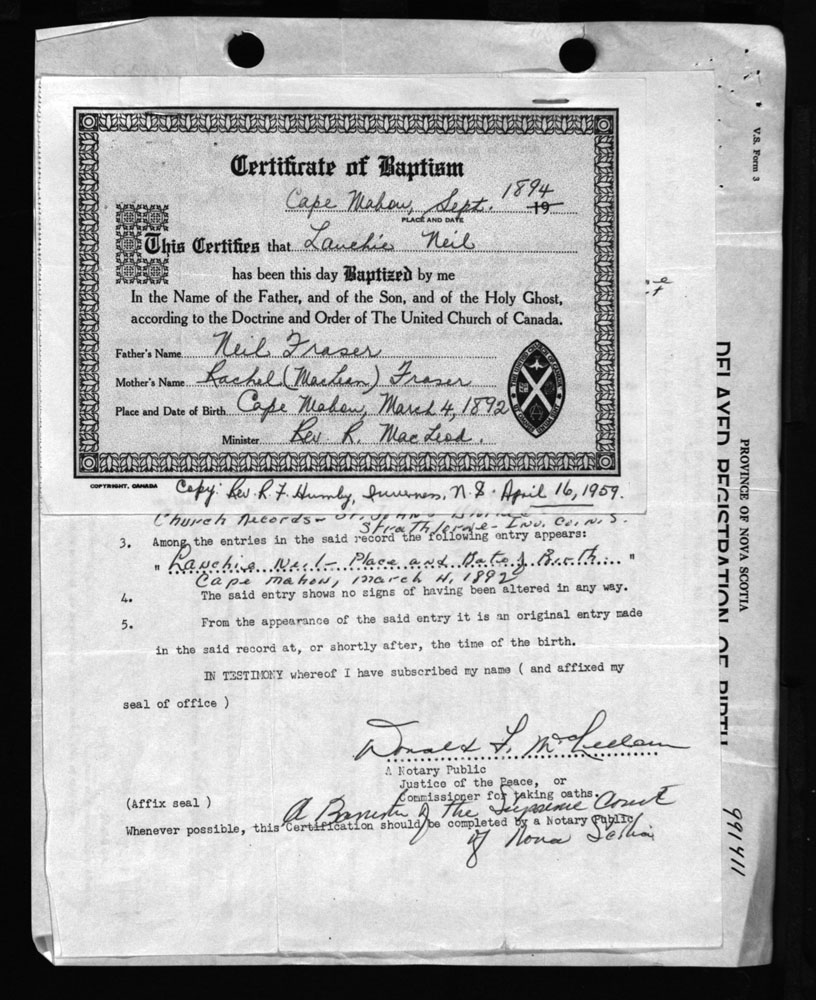 Certificate of Baptism
Cape Mabou, Sept. 1894
19
PLACE AND DATE
This Certifies that Lauchie Neil
has been this day Baptized by me
In the Name of the Father, and of the Son, and of the Holy Ghost,
according to the Doctrine and Order of The United Church of Canada.
Father's Name Neil Fraser
Mother's Name Rachel (MacLean) Fraser
Place and Date of Birth Cape Mabou, March 4, 1892
Minister Rev. R. MacLeod.
COPYRIGHT, CANADA
Copy: Rev. R. F. Humby, Inverness, N.S. April 16, 1959.
Church Records - St. John's
Strathlorne - Inv. Co. N.S.
3. Among the entries in the said record the following entry appears:
" Lauchie Neil - Place and Date of Birth. "
Cape Mabou, March 4, 1892
4. The said entry shows no signs of having been altered in any way.
5. From the appearance of the said entry it is an original entry made
in the said record at, or shortly after, the time of the birth.
IN TESTIMONY whereof I have subscribed my name ( and affixed my
seal of office )
Donald F. McLellan
A Notary Public
Justice of the Peace, or
Commissioner for taking oaths.
(Affix seal )
A Barrister of the Supreme Court
of Nova Scotia
Whenever possible, this Certification should be completed by a Notary Public
V.S. Form 3
PROVINCE OF NOVA SCOTIA
DELAYED REGISTRATION OF BIRTH
991411